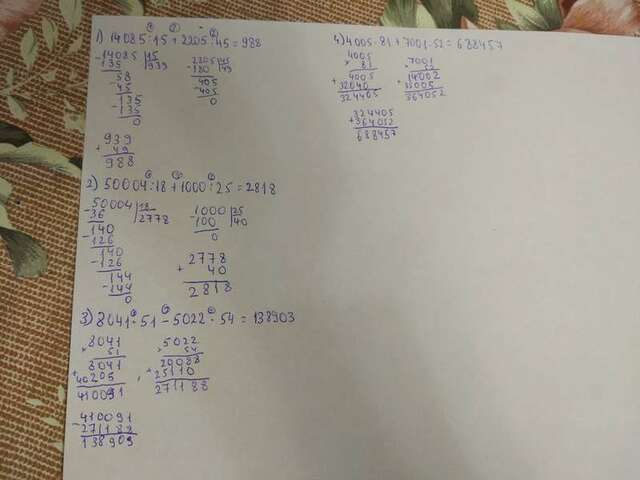 1) 14085 : 15 + 2205 : 45 = 988
14085 | 15
135 | 939
58
45
135
135
0
2205 | 45
180 | 49
405
405
0
939
+ 49
988
2) 50004 : 18 + 1000 : 25 = 2818
50004 | 18
36 | 2778
140
126
140
126
144
144
0
1000 | 25
100 | 40
0
2778
+ 40
2818
3) 8041 · 51 - 5022 · 54 = 138903
8041
× 51
8041
+ 40205
410091
5022
× 54
20088
+ 25110
271188
- 410091
271188
138909
4) 4005 · 81 + 7001 · 52 = 688457
4005
× 81
4005
+ 32040
324405
7001
× 52
14002
+ 35005
364052
324405
+ 364052
688457